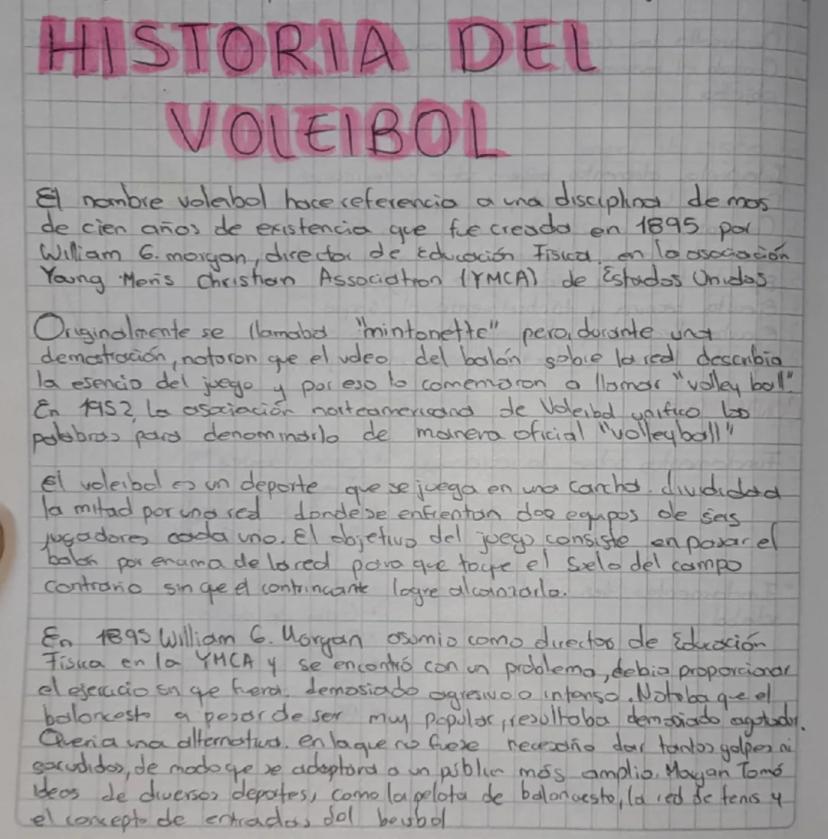 HISTORIA DEL
VOLEIBOL
El nombre voleibol hace referencia a una disciplina de mas
de cien años de existencia que fue creada en 1895 por
William G. morgan, director de Educación Fisica en la asociación
Young Men's Christian Association (YMCA) de Estados Unidos
Originalmente se llamaba "mintonette" pero, durante una
demostración, notaron que el vdeo del balón sobre la red describia
la esencia del juego y por eso lo comenzaron a llamar "volley bol".
En 1952, la asociación norteamericana de Voleibol unifico las
palabras para denominarlo de manera oficial "volleyball"
El voleibol es un deporte que se juega en una cancha dividida a
la mitad por una red donde se enfrentan dos equipos de seis
jugadores cada uno. El objetivo del juego consiste en pasar el
balón por encima de la red para que toque el suelo del campo
contrario sin que el contrincante logre alcanzarlo.
En 1895 William G. Morgan asumio como director de Educación
Fisica en la YMCA y se encontró con un problema, debia proporcionar
el ejercicio sin que fuera demasiado agresivo o intenso. Notaba que el
baloncesto a pesar de ser muy popular, resultaba demasiado agotador.
Queria una alternativa en la que no fuese necesario dar tantos golpes ni
sacudidas, de modo que se adaptara a un público más amplio. Morgan Tomó
ideas de diversos deportes, como la pelota de baloncesto, la red de tenis y
el concepto de entradas del beisbol